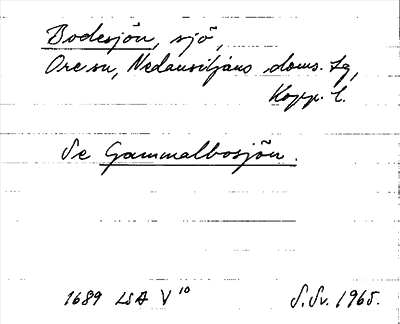 Bodesjön, sjö,
Ore sn, Nedansiljans doms. tg,
Kopp. l.
Se Gammalbosjön.
1689 LSA V 10
S.Sv. 1965.